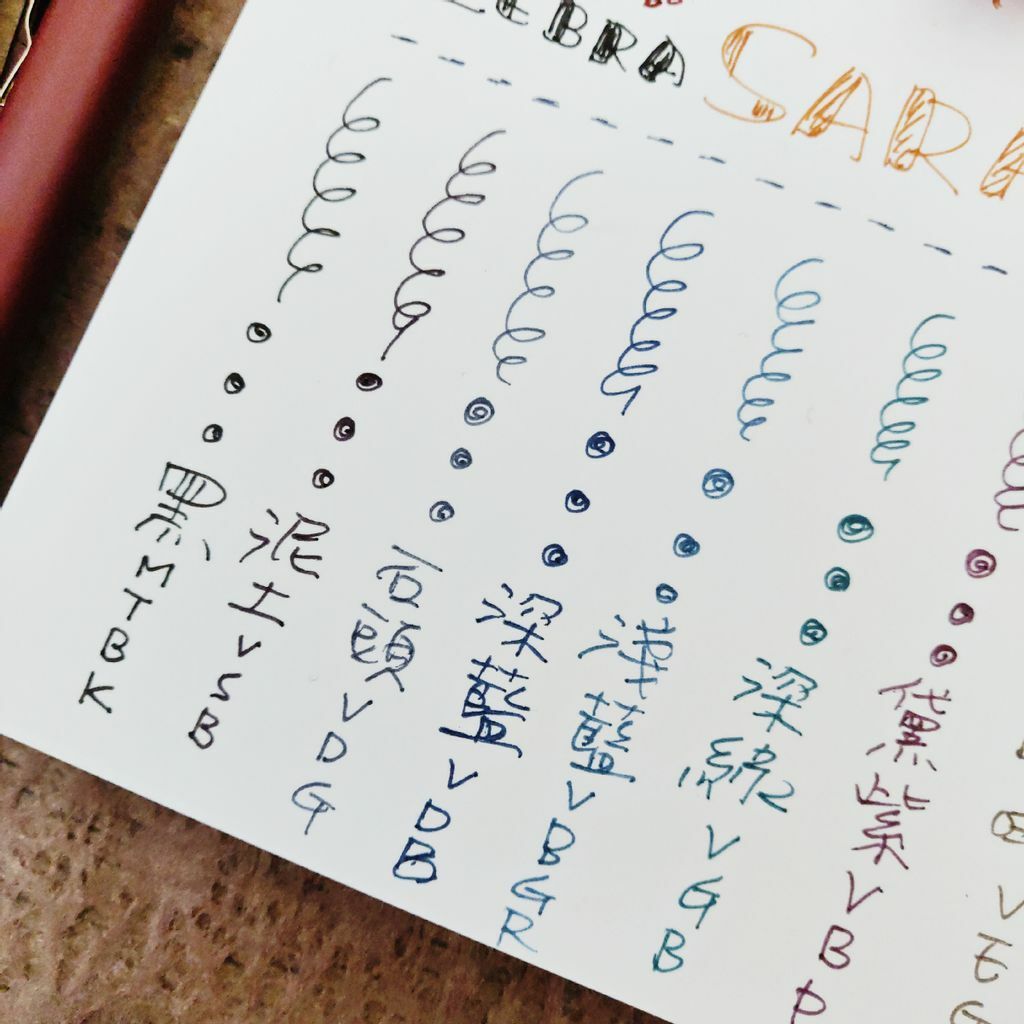 ZEBRA SARA
黑MTBK
泥土VSB
石頭VDG
深藍VDB
淺藍VBGR
深綠VGB
黛紫VBP